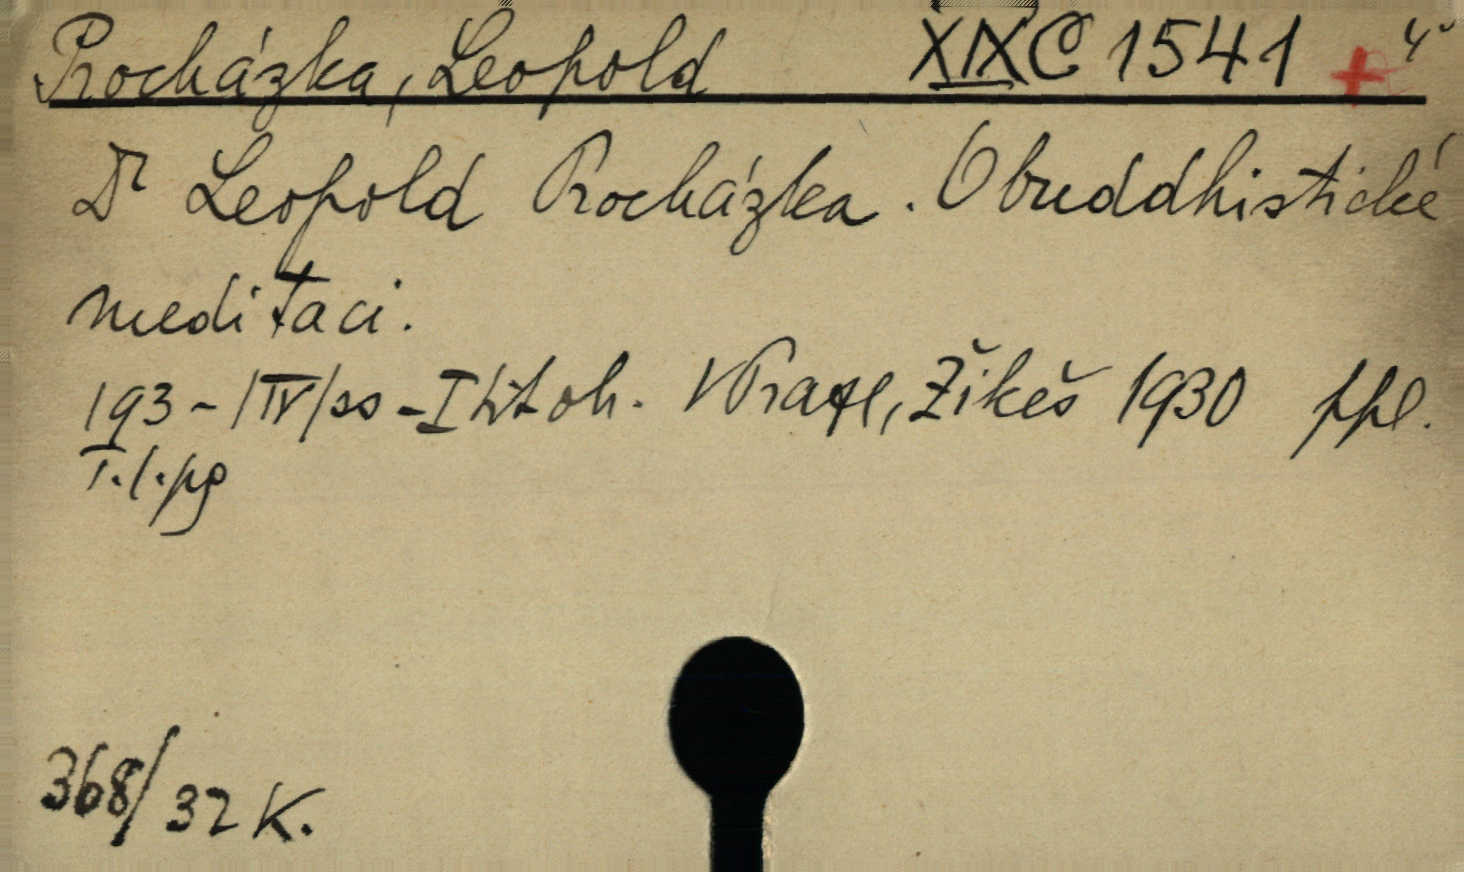 Procházka, Leopold XIXC 1541 + 4°
Dr Leopold Procházka. Obuddhistické
meditaci.
193-/IV/ss - I
V Praze, Žikeš 1930 ppl.
368/32 K.